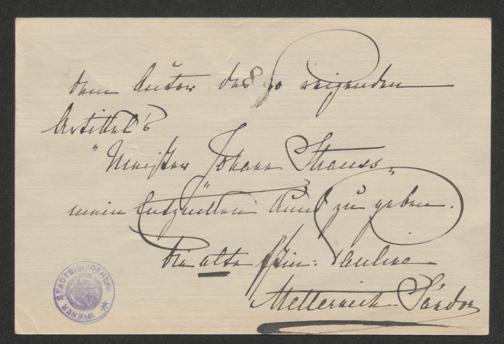 dem Autor des so reizenden
Artikel's
"Meister Johann Strauss"
mein Entzücken kund zu geben.
Die alte Fstin: Pauline
Metternich Sándor
WIENER STADTBIBLIOTHEK